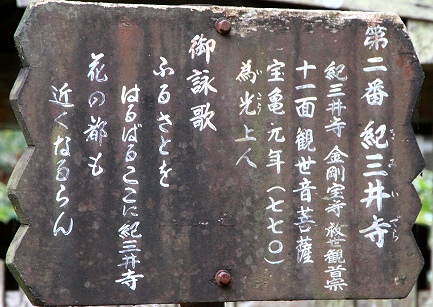 第二番 紀三井寺
きみいでら
紀三井寺 金剛宝寺 救世観音宗
十一面観世音菩薩
宝亀元年(七七〇)
為光上人
いこう
御詠歌
ふるさとを
はるばるここに紀三井寺
花の都も
近くなるらん